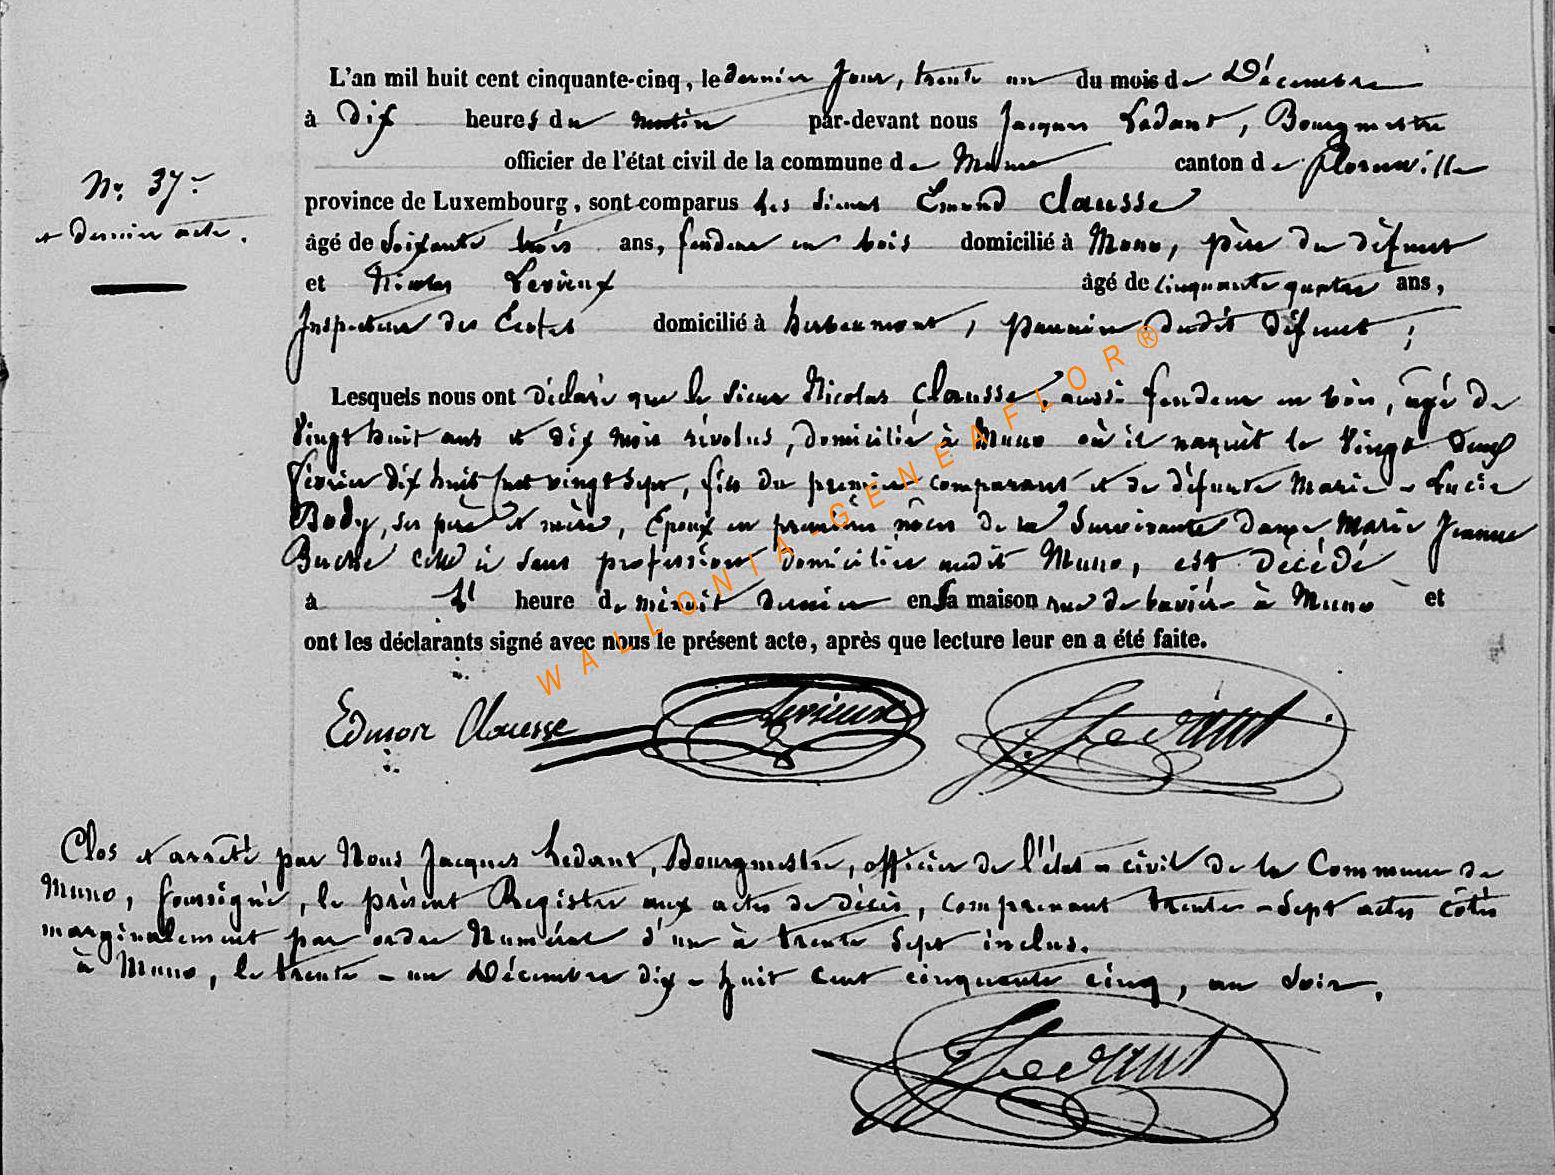 L'an mil huit cent cinquante-cinq, le dernier jour, trente un du mois de Décembre
à dix heures du matin par-devant nous Jacques Ledant, Bourgmestre
officier de l'état civil de la commune de Muno canton de florenville
province de Luxembourg, sont comparus les sieurs Emond Clausse
âgé de soixante trois ans, fendeur en bois domicilié à Muno, père du défunt
et Nicolas Lerieux âgé de cinquante quatre ans,
Inspecteur des Ecoles domicilié à herbeumont, parrain dudit défunt;
N.° 37.-
et dernier acte.
Lesquels nous ont déclaré que le sieur Nicolas Clausse, aussi fendeur en bois, âgé de
vingt huit ans et dix mois révolus, domicilié à Muno où il naquit le vingt deux
février dix huit cent vingt sept, fils du premier comparant et de défunte Marie-Lucie
Body, ses père et mère, Epoux en premières nôces de la survivante dame Marie Jeanne
celle ci sans profession domiciliée audit Muno, est décédé
à L' heure de minuit dernier en sa maison rue de bavière à Muno et
ont les déclarants signé avec nous le présent acte, après que lecture leur en a été faite.
WALLONIA-GENEAFLOR®
Edmon Clausse Lerieux J. Ledant
Clos et arrêté par Nous Jacques Ledant, Bourgmestre, officier de l'état-civil de la Commune de
Muno, soussigné, le présent Registre aux actes de décès, comprenant trente-sept actes côtés
marginalement par ordre Numéral d'un à trente sept inclus.
à Muno, le trente-un Décembre dix-huit cent cinquante cinq, au soir.
J. Ledant